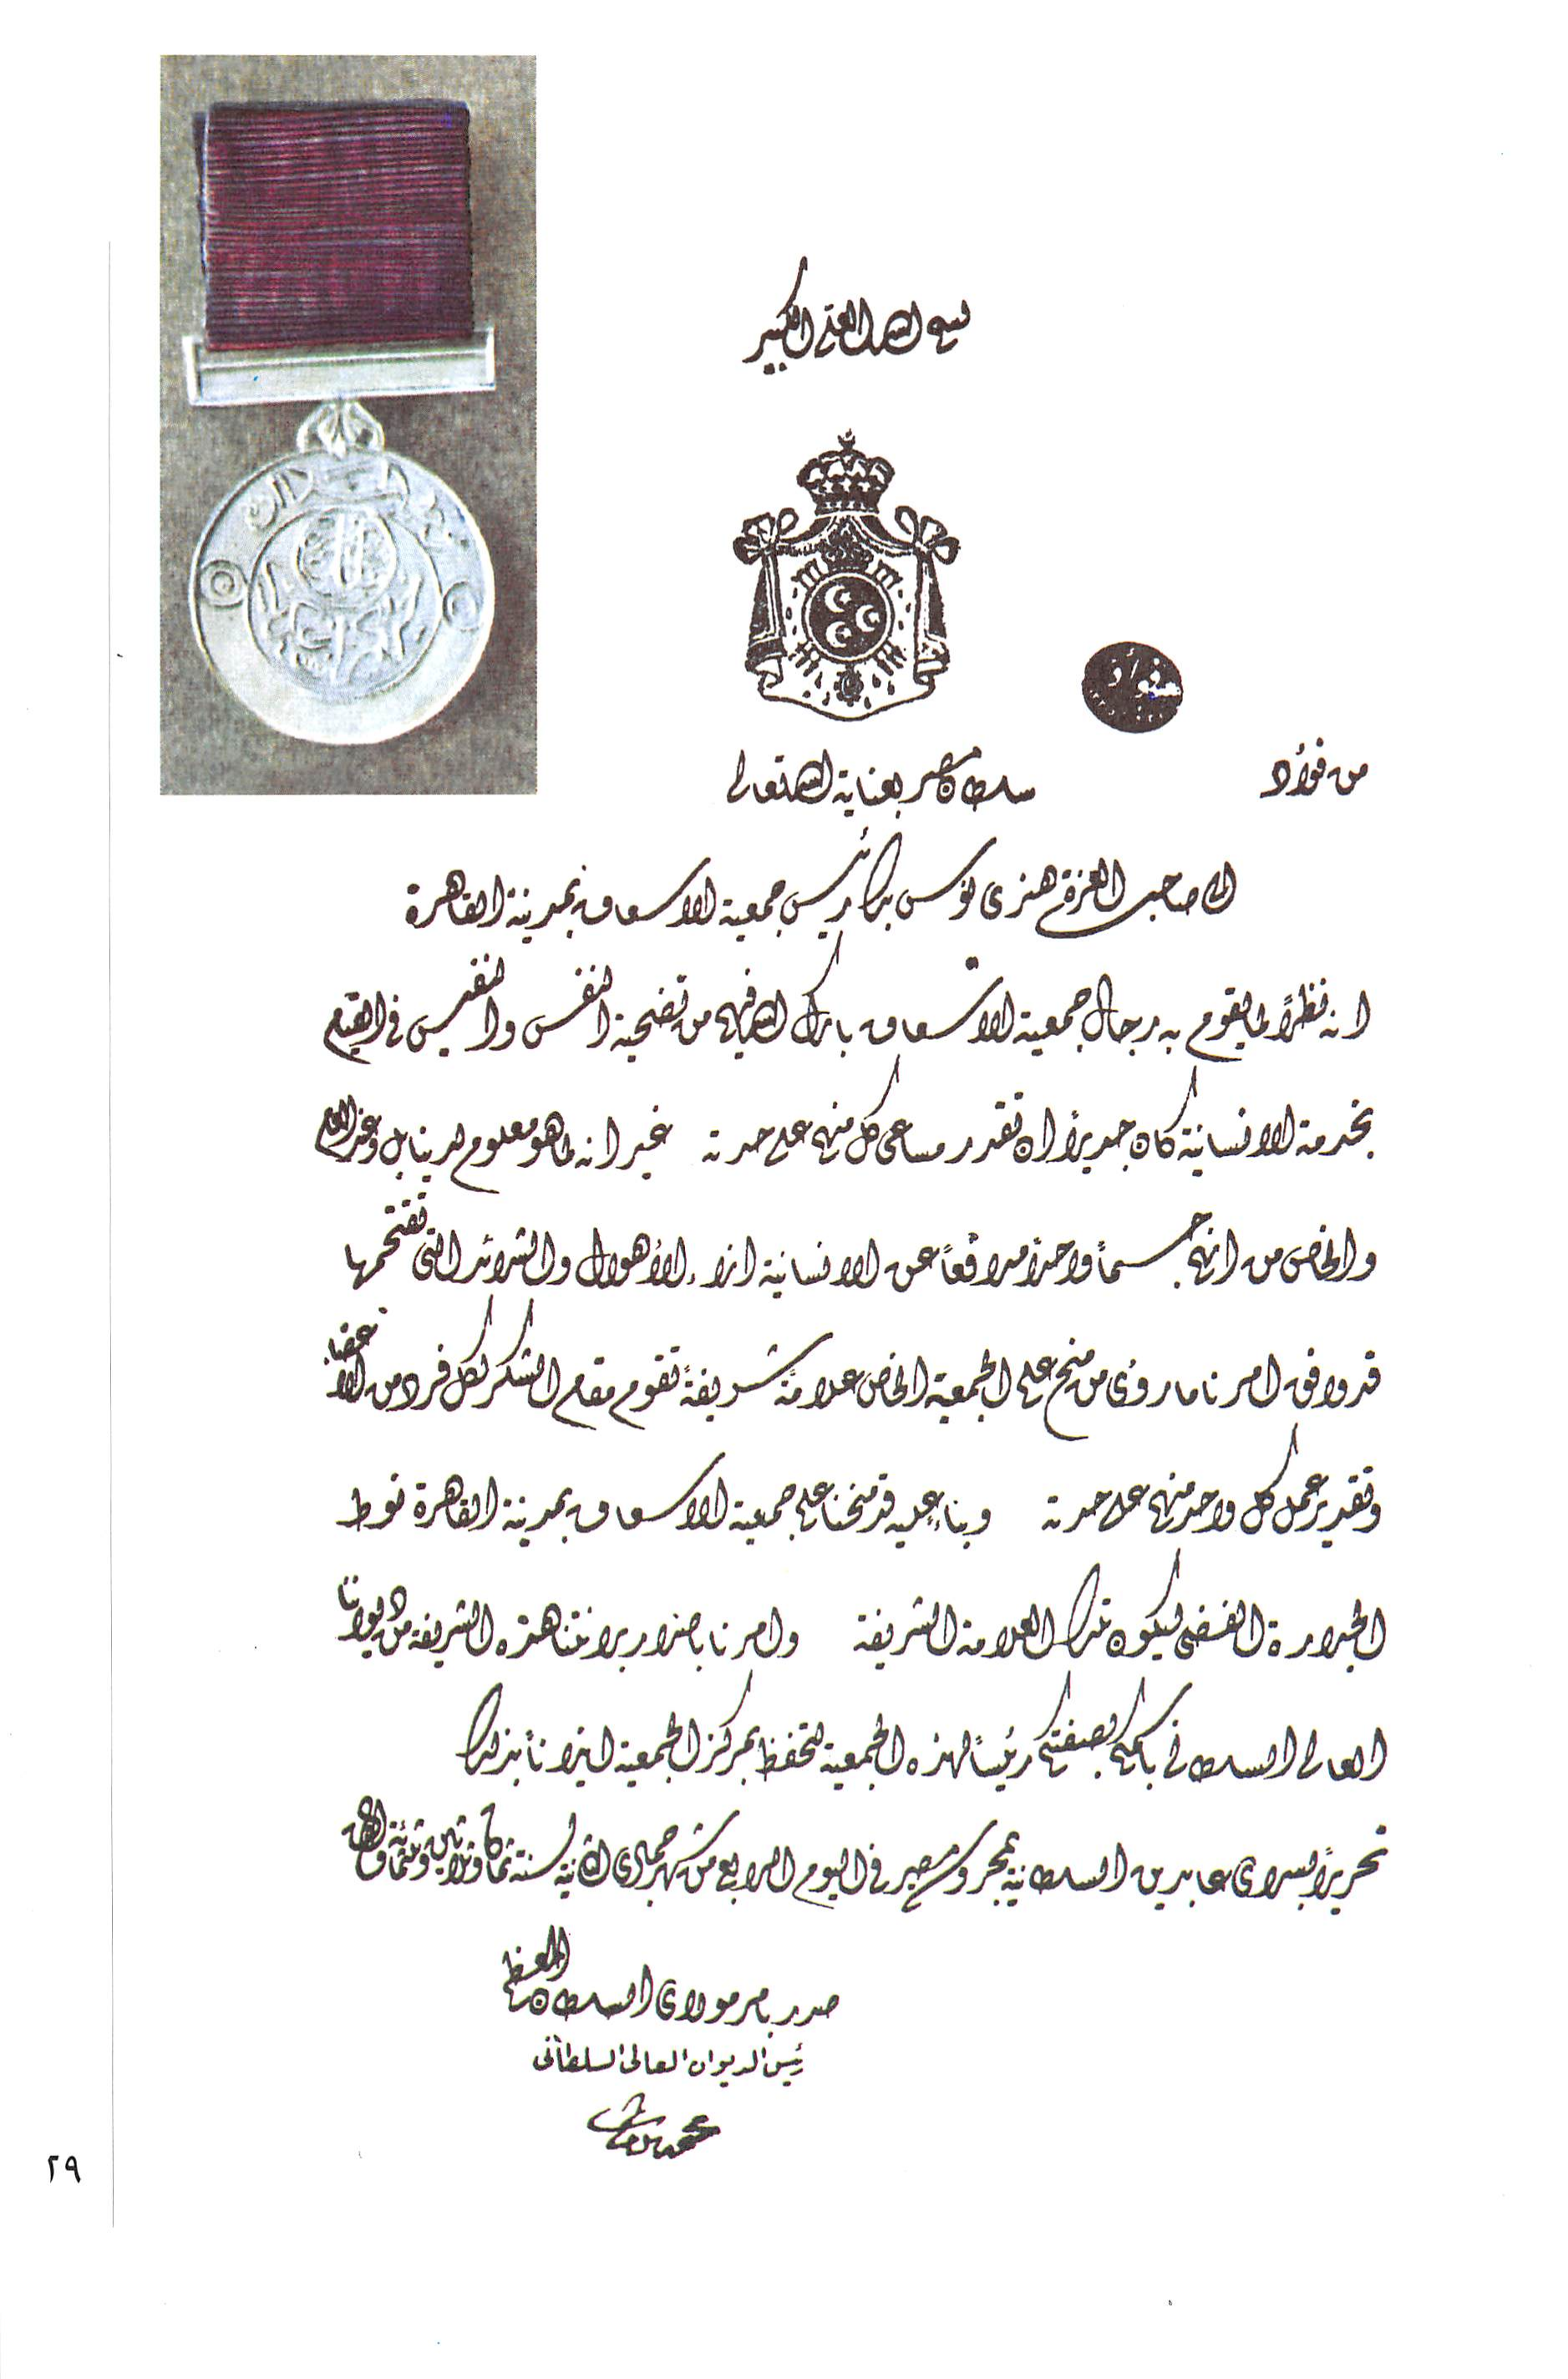 بسم الله العلى الكبير
فؤاد
من فؤاد سلطان مصر بعناية الله تعالى
الى صاحب العزة هنرى نوس بك رئيس جمعية الاسعاف بمدينة القاهرة
انه نظراً لما يقوم به رجال جمعية الاسعاف بارك الله فيهم من تضحية النفس والنفيس فى القيام
بخدمة الانسانية كان جديراً ان تقدر مساعى كل منهم على حدته غير انه لما هو معلوم لدينا بل وعند العام
والخاص من انهم جسماً واحداً مدافعاً عن الانسانية ازاء الأهوال والشدائد التى تقتحمها
قد وافق امرنا ما رؤى من منح على الجمعية الخاص علامةً شريفةً تقوم مقام الشكر لكل فرد من الاعضاء
وتقدير عمل كل واحد منهم على حدته وبناءً عليه قد منحنا على جمعية الاسعاف بمدينة القاهرة نوط
الجدارة الفضى ليكون تلك العلامة الشريفة وامرنا باصدار براءتنا هذه الشريفة من ديواننا
العالى السلطانى باسمكم بصفتكم رئيساً لهذه الجمعية لتحفظ بمركز الجمعية ايذاناً بذلك
تحريراً بسراى عابدين السلطانية بمحروسة مصر فى اليوم الرابع من شهر جمادى الثانية لسنة ثمان وثلاثين وثلثمائة والف
صدر بامر مولاى السلطان المعظم
رئيس الديوان العالى السلطانى
٢٩